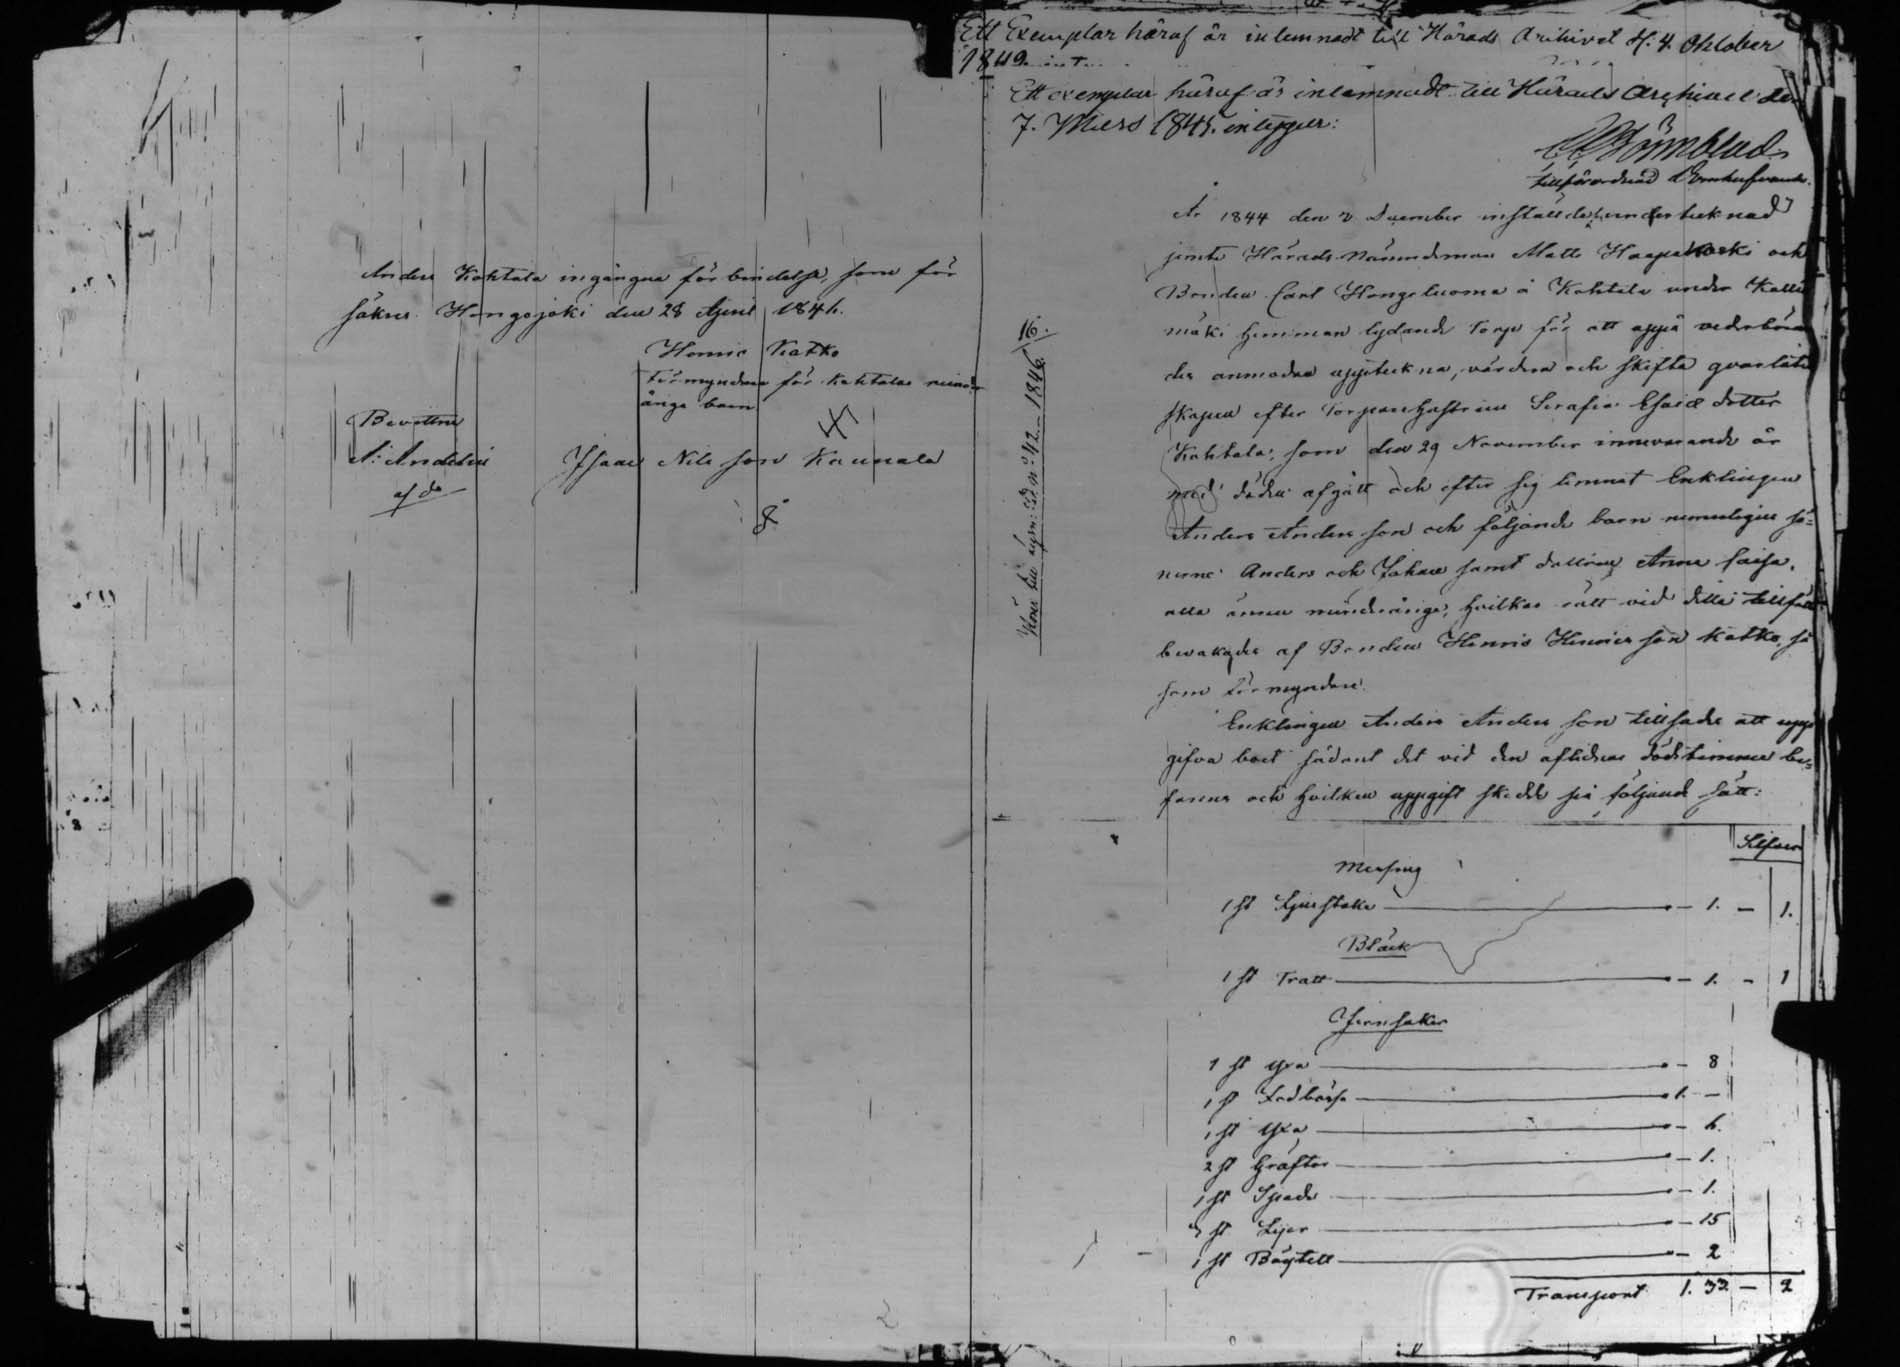 Anders Kohtala ingångna förbindelse, som för
säkras. Hongojoki den 28 April 1846.
Henric Katko
Förmyndare för Kohtalas minder
åriga barn
Bevittna
A: Andelin
af do
Isaac Nils son Kaunala
Ett Exemplar häraf är inlemnadt till Härads Arkivet d. 4. Oktober
1849.
Ett exemplar häraf är inlemnadt till Härads Archivet den
7. Mars 1845. intygar:
tillförordnad Domhafvande.
År 1844 den 2 December inställde undertecknad
jemte Härads Nämndeman Matts Haapakoski och
Bonden Carl Hongeluoma å Kohtala under Kallio
mäki Hemman lydande Torp för att uppå vederböran
des anmodan uppteckna, värdera och skifta qvarlåten
skapen efter Torparehustrun Serafia Esaiæ dotter
Kohtala, som den 29 November innevarande år
med döden afgått och efter sig lemnat Enklingen
Anders Anders son och följande barn nemligen sö-
nerne Anders och Johan samt dottren Anna Caisa,
alla ännu minderåriga, hvilkas rätt vid detta tillfälle
bevakades af Bonden Henric Henrics son Katko, så
som Förmyndare.
Enklingen Anders Anders son tillsades att upp
gifva boet sådant det vid den aflidnas dödstimma be-
fanns och hvilken uppgift skedde på följande sätt:
Silfver
Messing
1 st Ljusstake — 1. — 1.
Bläck
1 st Tratt — 1. — 1
Jernsaker
1 st Yxa — 8
1 st Lodbössa 1. —
1 st Yxa — 6.
2 st Gräftor — 1.
1 st Spade — 1.
3 st Lijor — 15
1 st Bögtell — 2
Transport 1. 32 — 2
16.
Hörer till afsn: 42. 1846.